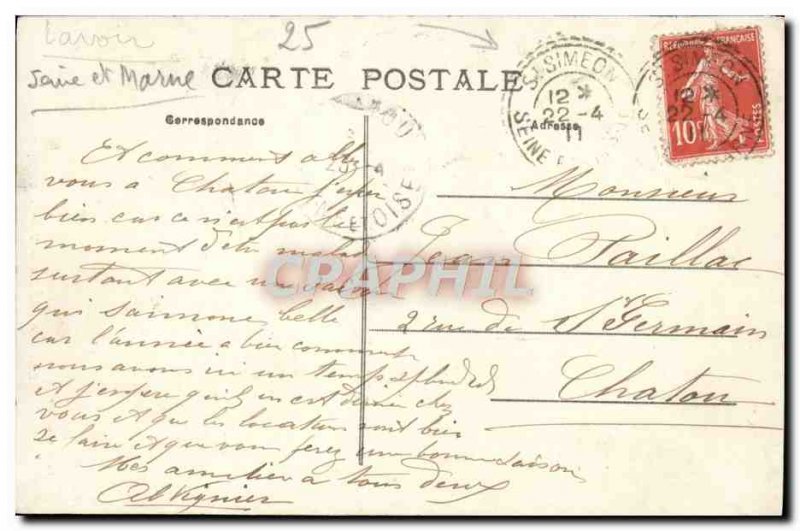 Lavoir
25
Seine et Marne
CARTE POSTALE
Correspondance
Adresse
St SIMEON
12 *
22 - 4
11
SEINE
St SIMEON
12 *
22 4
FRANCAISE
10
POSTES
OISE
CPAPHIL
Et comment allez
vous a Chatou j'espere
bien car ce n'est pas le
moment d'etre malade
surtout avec une
qui s'annonce belle
car l'année a bien commencé
nous avons ici un temps splendide
et j'espere qu'il en est de même chez
vous et que les locations vont bien
se faire et que vous ferez une bonne saison
Mes amitiés a tous deux
Monsieur
Jean Paillac
2 rue de St Germain
Chatou